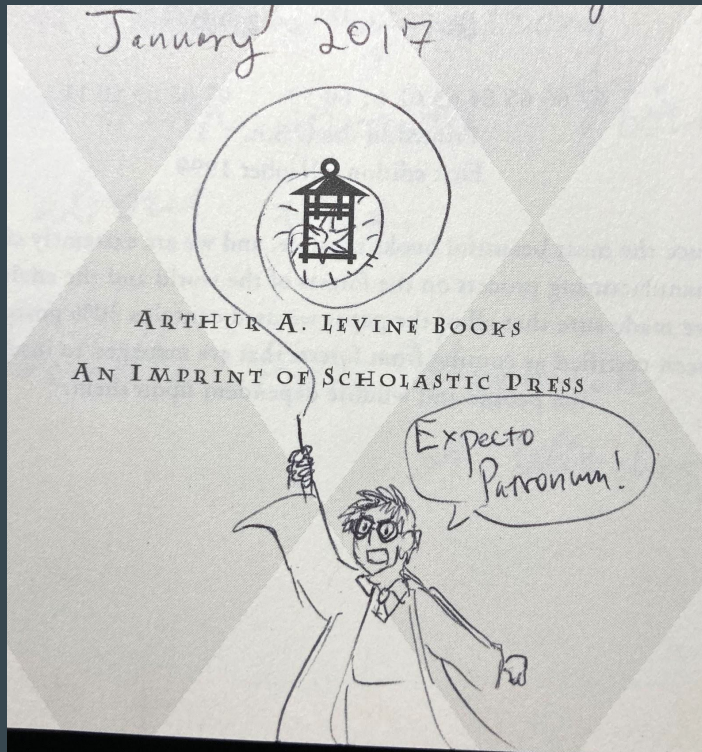 January 2017
ARTHUR A. LEVINE BOOKS
AN IMPRINT OF SCHOLASTIC PRESS
Expecto
Patronum!